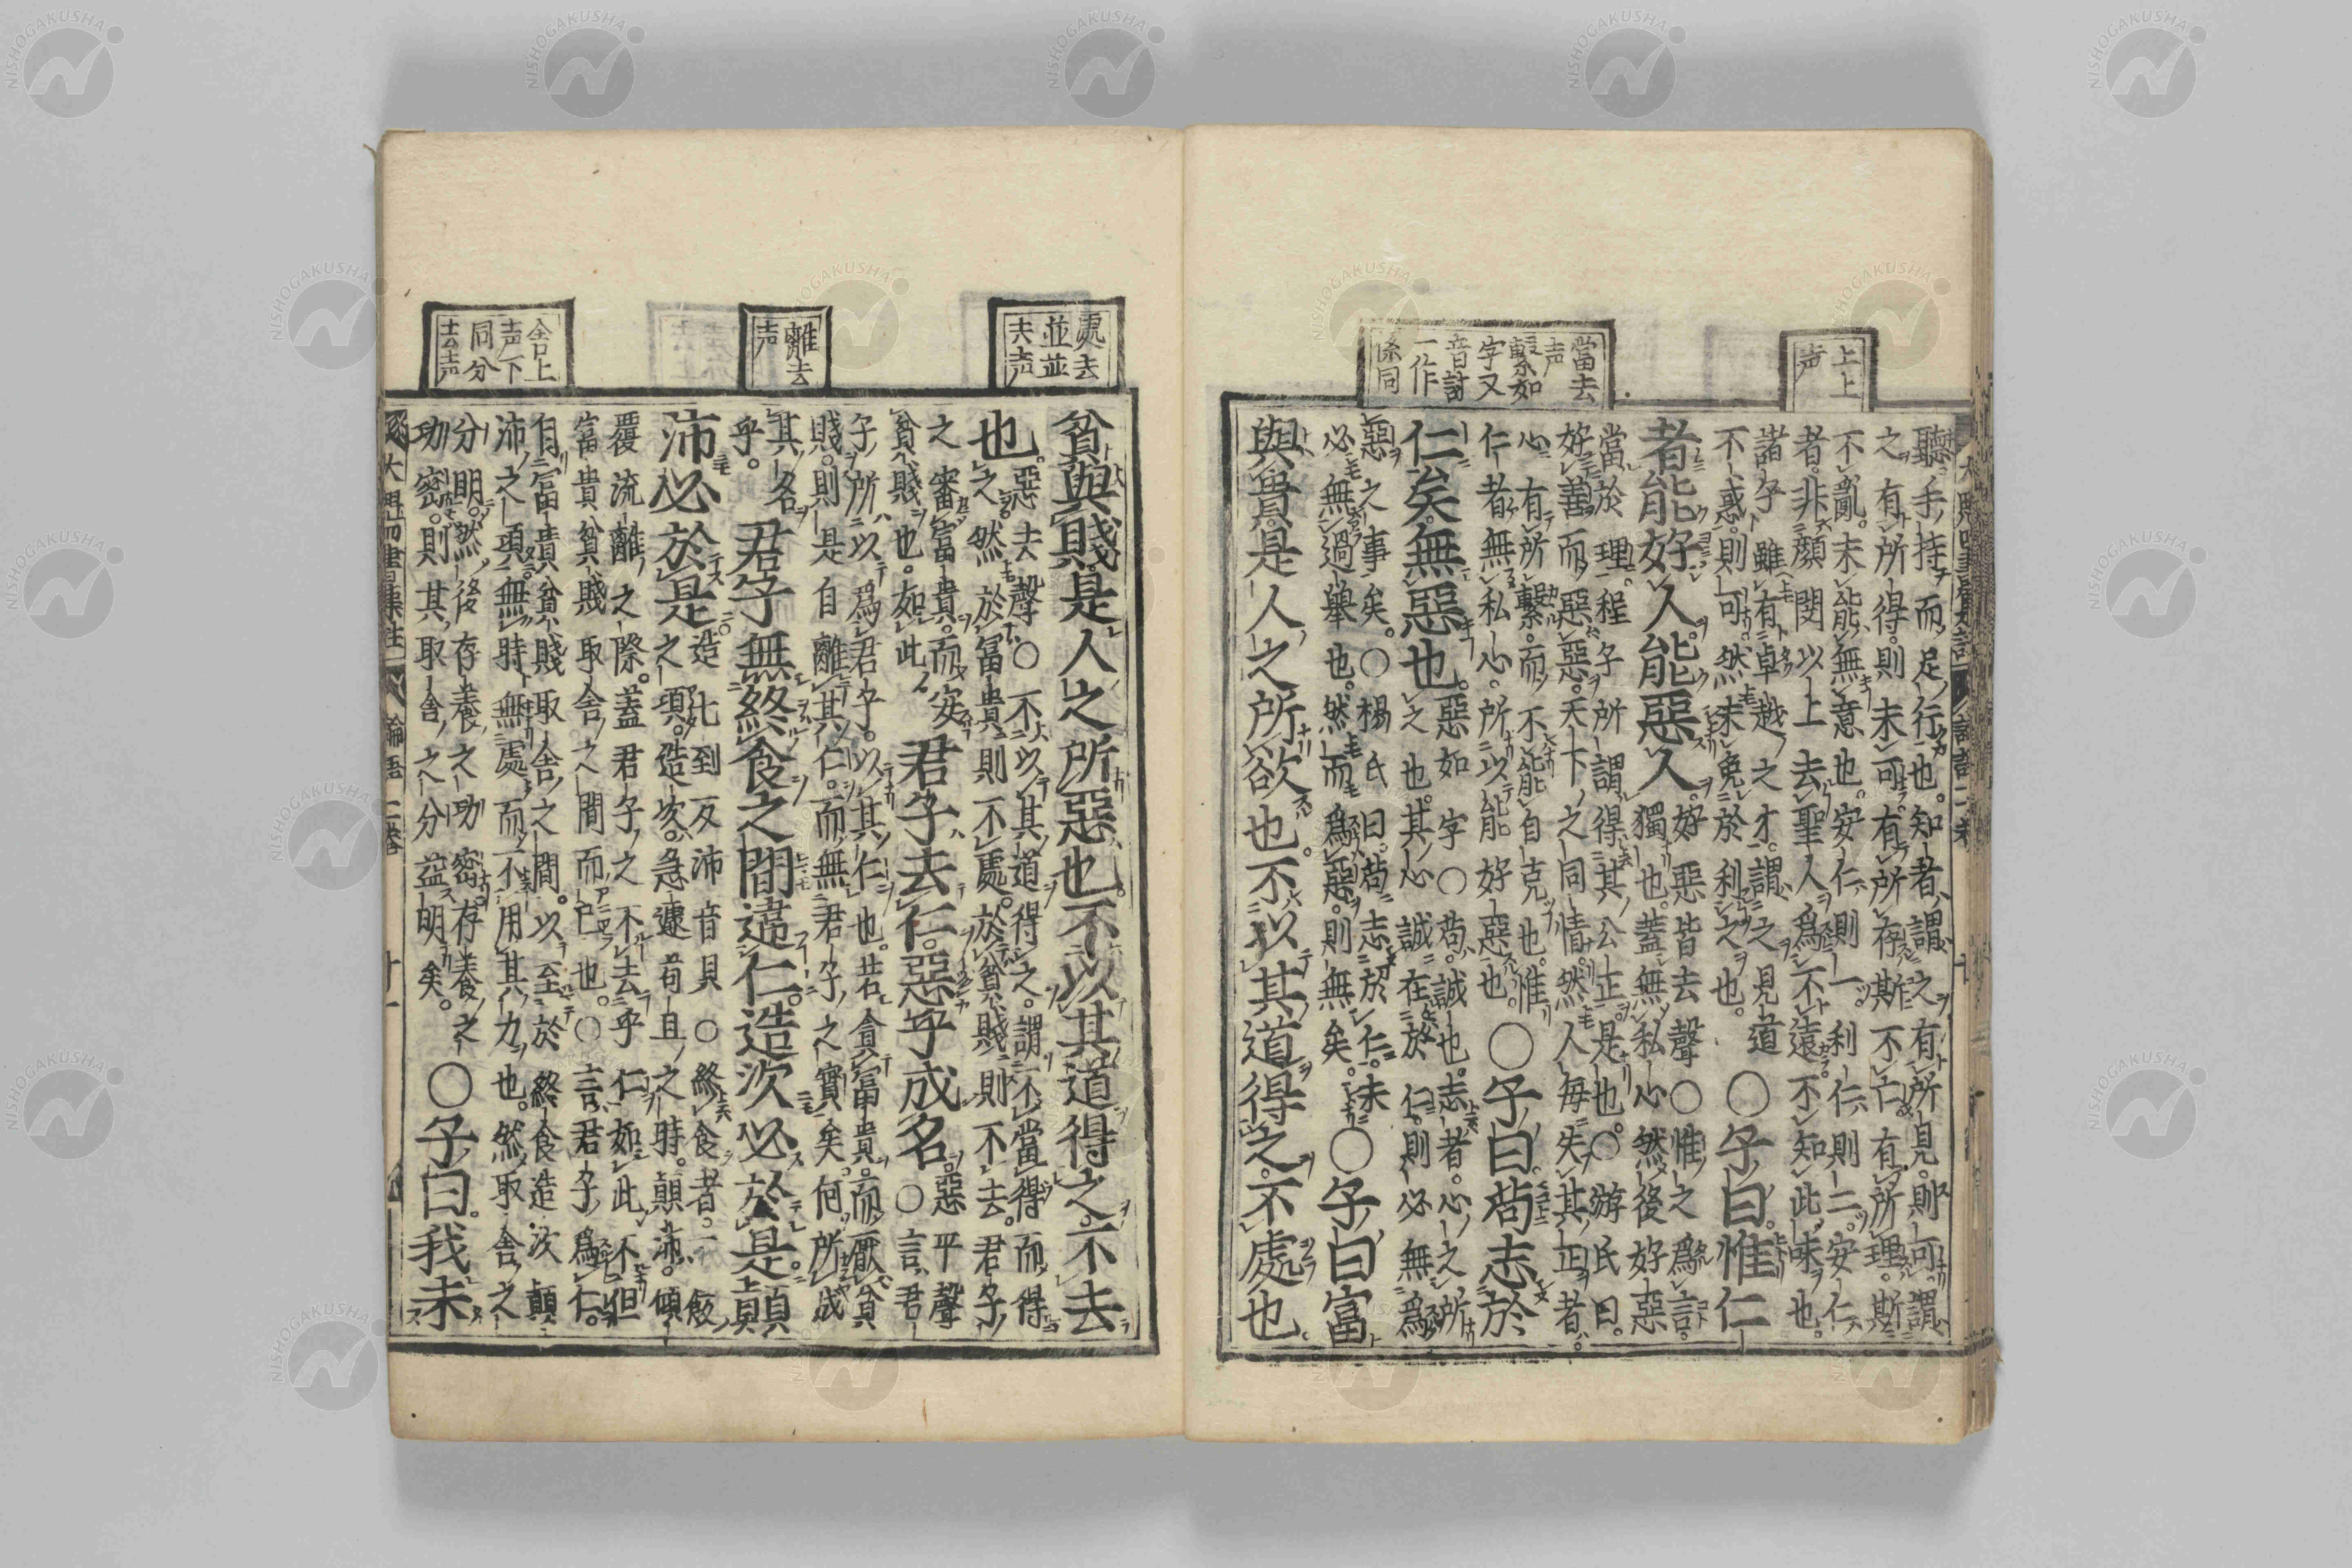 上上声
當去声繫如字又音討一作係同
聽。手持而足行也。知者謂之有所見。則可。謂
之有所得。則未可。有所存斯不亡。有所理。斯
不亂。未能無意也。安仁則一。利仁則二。安仁
者。非顔閔以上去聖人爲不遠不知此味也。
諸子雖有卓越之才。謂之見道
不惑。則可。然未免於利之也。
○子曰。惟仁
者能好人。能惡人。
好惡皆去聲○惟之爲言。
獨也。蓋無私心然後好惡
當於理。程子所謂得其公正。是也。○游氏曰。
好善而惡惡。天下之同情。然人毎失其正者。
心有所繫。而不能自克也。惟
仁者無私心。所以能好惡也。
○子曰。苟志於
仁矣。無惡也。
惡如字○苟。誠也。志者。心之所
之也。其心誠在於仁。則必無爲
惡之事矣。○楊氏曰。苟志於仁。未
必無過舉也。然而爲惡。則無矣。
○子曰富
與貴。是人之所欲也。不以其道得之。不處也。
處去並並去声
離去声
舍上声下同分去声
貧與賤是人之所惡也。不以其道得之。不去
也。
惡去聲○不以其道得之。謂不當得而得
之然於富貴則不處。於貧賤則不去。君子
之審富貴。而安
貧賤也。如此
君子去仁。惡乎成名
惡平聲○言君
子所以爲君子。以其仁也。若貪富貴。而厭貧
賤。則是自離其仁。而無君子之實矣。何所成
其名
乎。
君子無終食之間違仁。造次必於是。顛
沛必於是
造七到反沛音貝○終食者。一飯
之頃。造次。急遽苟且之時。顛沛。傾
覆流離之際。蓋君子之不去乎仁如此。不但
富貴貧賤取舍之間而已也。○言君子爲仁。
自富貴貧賤取舍之間。以至於終食造次顛
沛之頃無時無處而不用其力也。然取舍之
分明。然後存養之功密存養之
功密。則其取舍之分益明矣。
○子曰。我未
大魁四書集註 論語二卷 十一